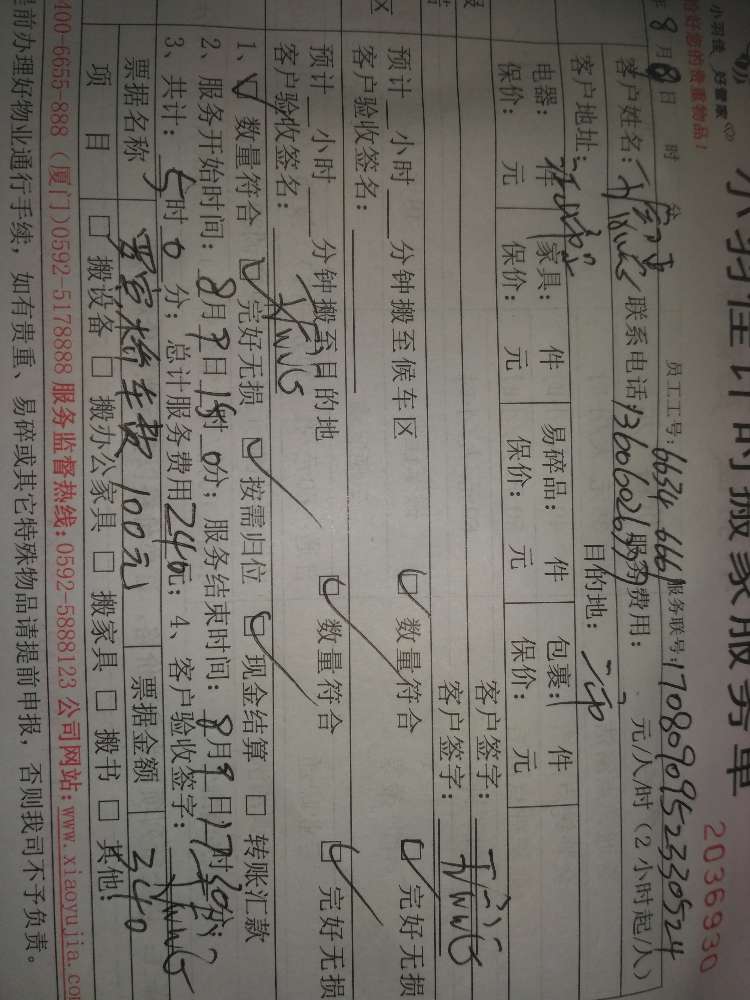 小羽佳 好管家
小羽佳计时搬家服务单
2036930
恰好您的贵重物品！
年 8 月 8 日 时 分
员工工号：6634 666
服务联号：1708090952330524
客户姓名：
联系电话：13606026
服务费用： 元/人/时（2小时起/人）
客户地址：
目的地：
电器： 件 家具： 件 易碎品： 件 包裹： 件
保价： 元 保价： 元 保价： 元 保价： 元
客户签字：
客户签字：
预计 小时 分钟搬至候车区 数量符合 完好无损
客户验收签名：
预计 小时 分钟搬至目的地 数量符合 完好无损
客户验收签名：
1、 数量符合 完好无损 按需归位 现金结算 转账汇款
2、服务开始时间：8月9日15时0分；服务结束时间：8月9日17时30分；
3、共计：5时0分；总计服务费用240元；4、客户验收签字：
票据名称 车费100元 票据金额 340
项 目 搬设备 搬办公家具 搬家具 搬书 其他：
400-6655-888（厦门）0592-5178888 服务监督热线：0592-5888123 公司网站：www.xiaoyujia.co
提前办理好物业通行手续，如有贵重、易碎或其它特殊物品请提前申报，否则我司不予负责。